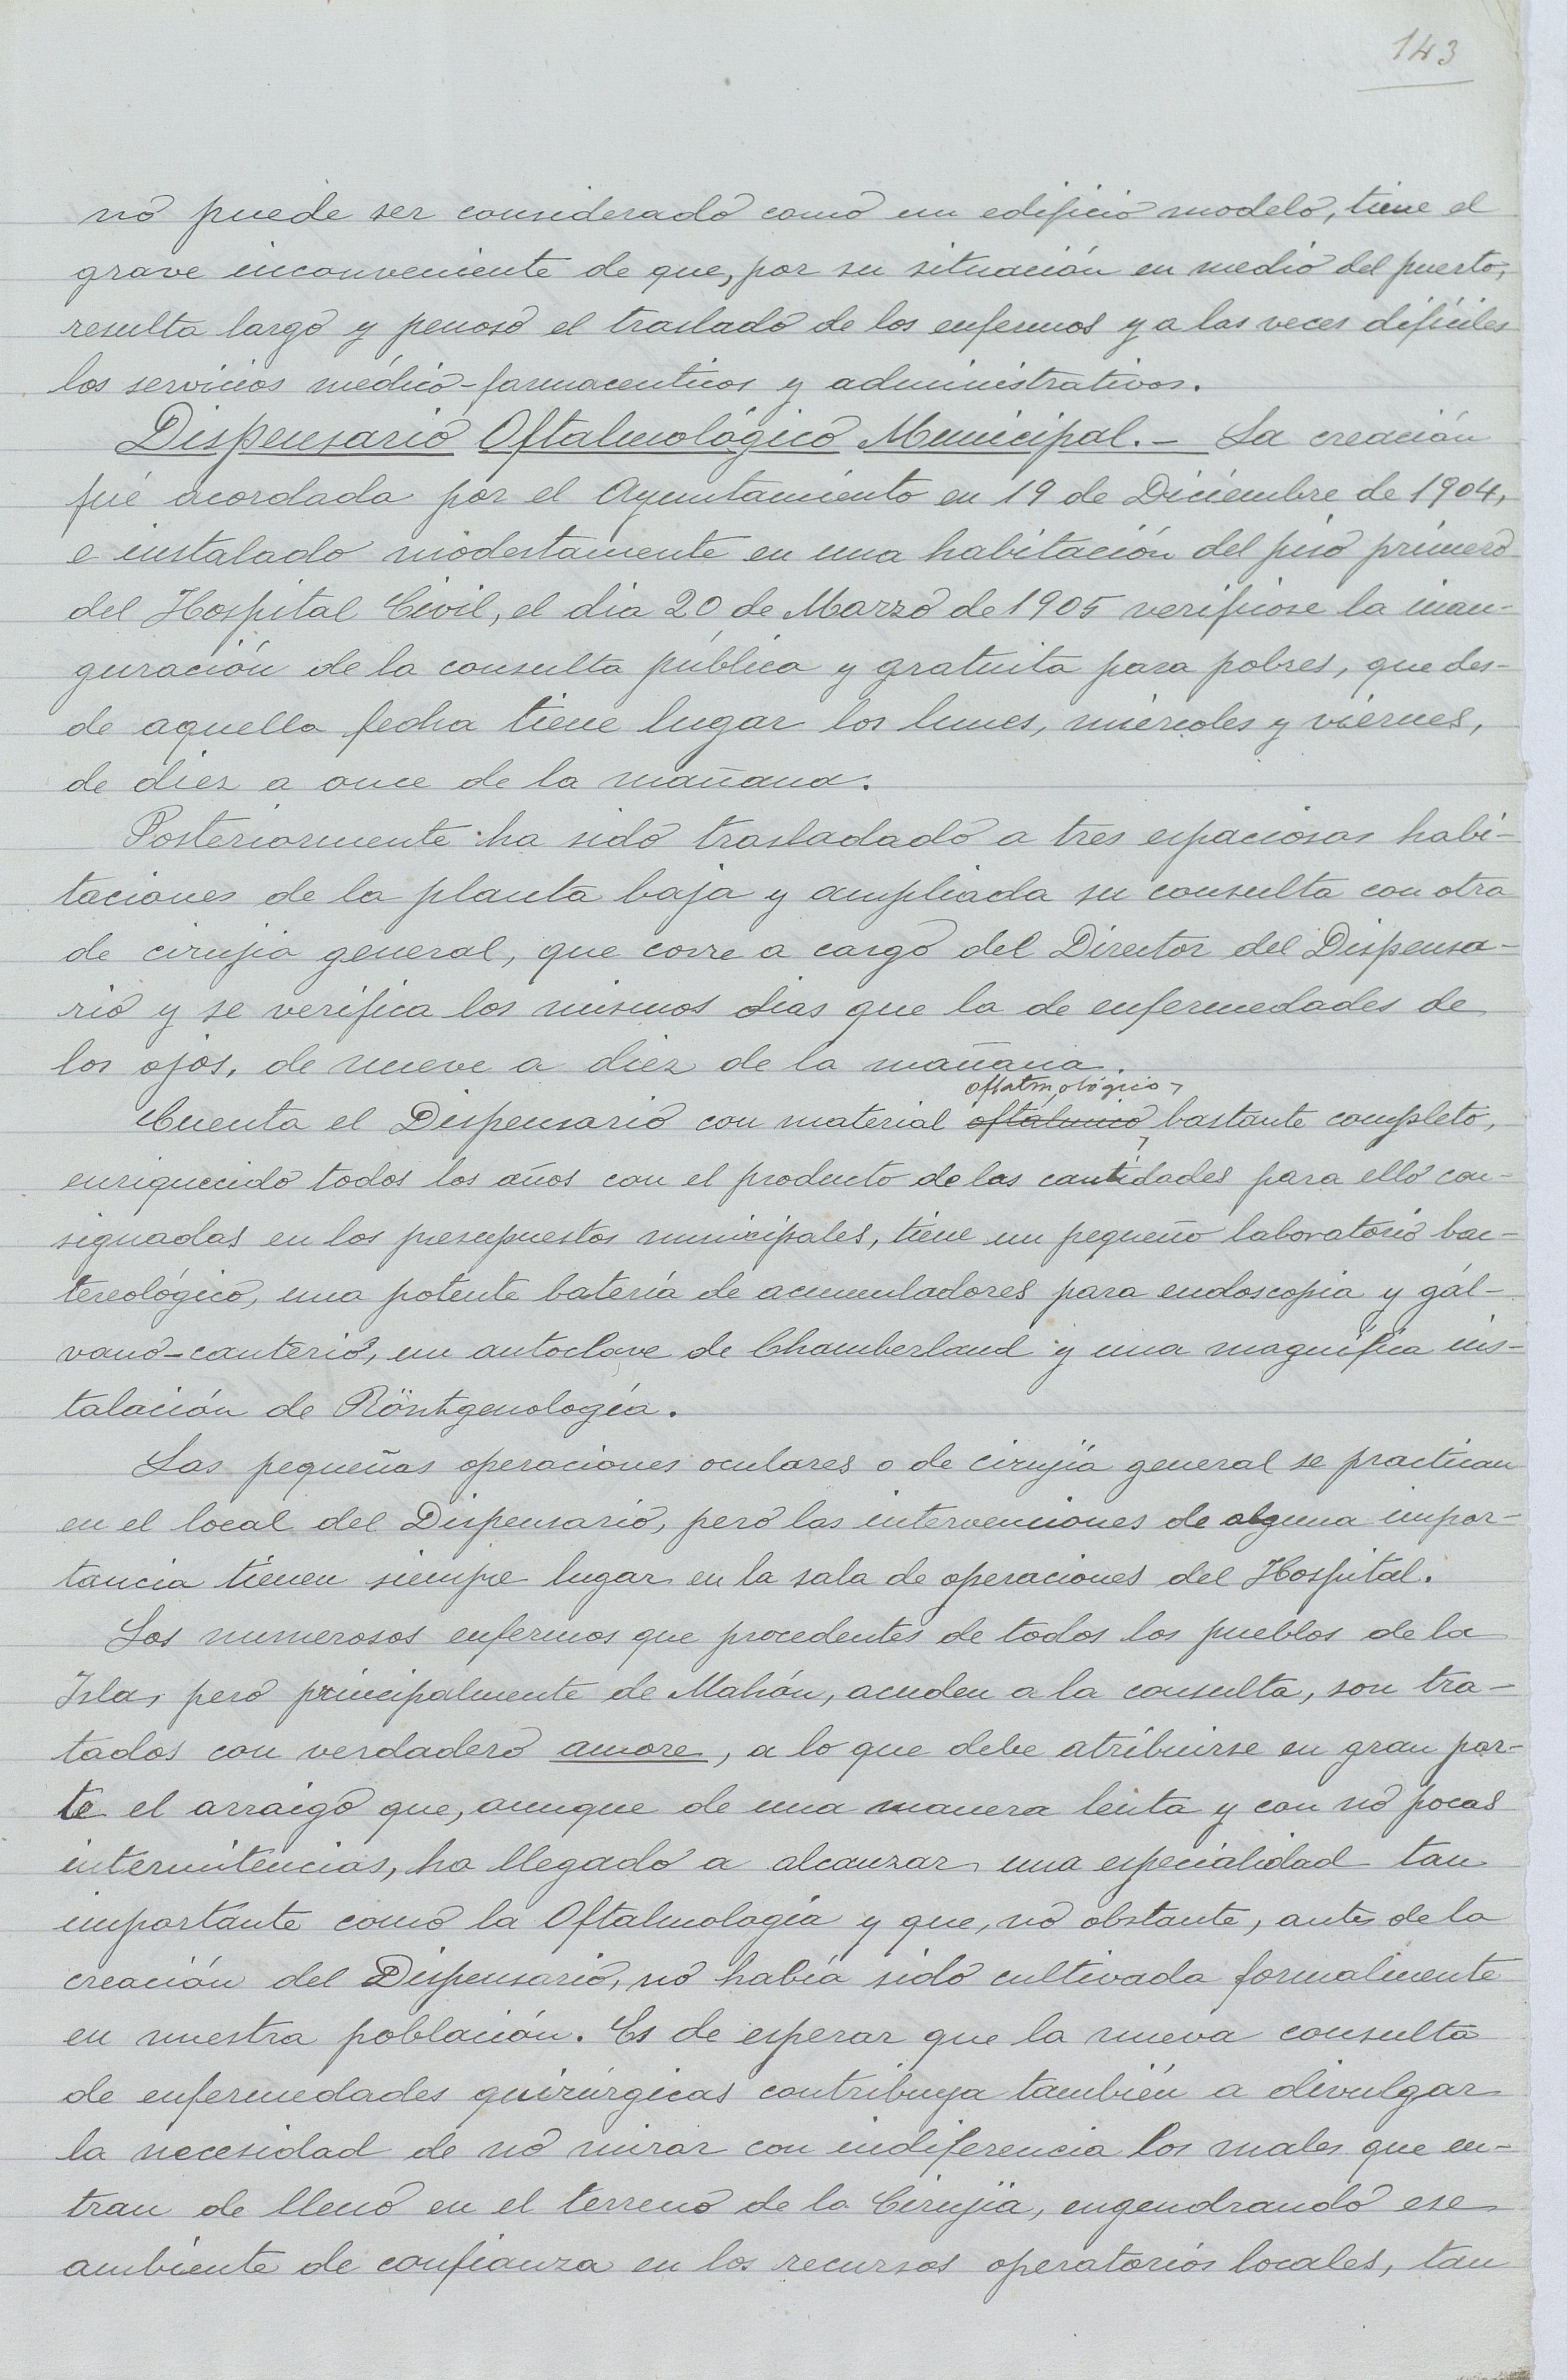 143
no puede ser considerado como un edificio modelo, tiene el
grave inconveniente de que, por su situación en medio del puerto,
resulta largo y penoso el traslado de los enfermos y a las veces difíciles
los servicios médico-farmaceuticos y administrativos.
Dispensario Oftalmológico Municipal.- La creación
fué acordada por el Ayuntamiento en 19 de Diciembre de 1904,
e instalado modestamente en una habitación del piso primero
del Hospital Civil, el dia 20 de Marzo de 1905 verificose la inau-
guración de la consulta pública y gratuita para pobres, que des-
de aquella fecha tiene lugar los lunes, miércoles y viernes,
de diez a once de la mañana.
Posteriormente ha sido trasladado a tres espaciosas habi-
taciones de la planta baja y ampliada su consulta con otra
de cirujia general, que corre a cargo del Director del Dispensa-
rio y se verifica los mismos dias que la de enfermedades de
los ojos, de nueve a diez de la mañana.
oftatmológico
Cuenta el Dispensario con material oftalmico bastante completo,
enriquecido todos los años con el producto de las cantidades para ello con-
signadas en los presupuestos municipales, tiene un pequeño laboratorio bac-
tereológico, una potente batería de acumuladores para endoscopia y gál-
vano-cauterio, un autoclave de Chamberland y una magnífica ins-
talación de Röntgenología.
Las pequeñas operaciones oculares o de cirujía general se practican
en el local del Dispensario, pero las intervenciones de alguna impor-
tancia tienen siempre lugar en la sala de operaciones del Hospital.
Los numerosos enfermos que procedentes de todos los pueblos de la
Isla, pero principalmente de Mahón, acuden a la consulta, son tra-
tados con verdadero amore, a lo que debe atribuirse en gran par-
te el arraigo que, aunque de una manera lenta y con no pocas
intermitencias, ha llegado a alcanzar una especialidad tan
importante como la Oftalmología y que, no obstante, antes de la
creación del Dispensario, no había sido cultivada formalmente
en nuestra población. Es de esperar que la nueva consulta
de enfermedades quirúrgicas contribuya también a divulgar
la necesidad de no mirar con indiferencia los males que en-
tran de lleno en el terreno de la Cirujía, engendrando ese
ambiente de confianza en los recursos operatorios locales, tan